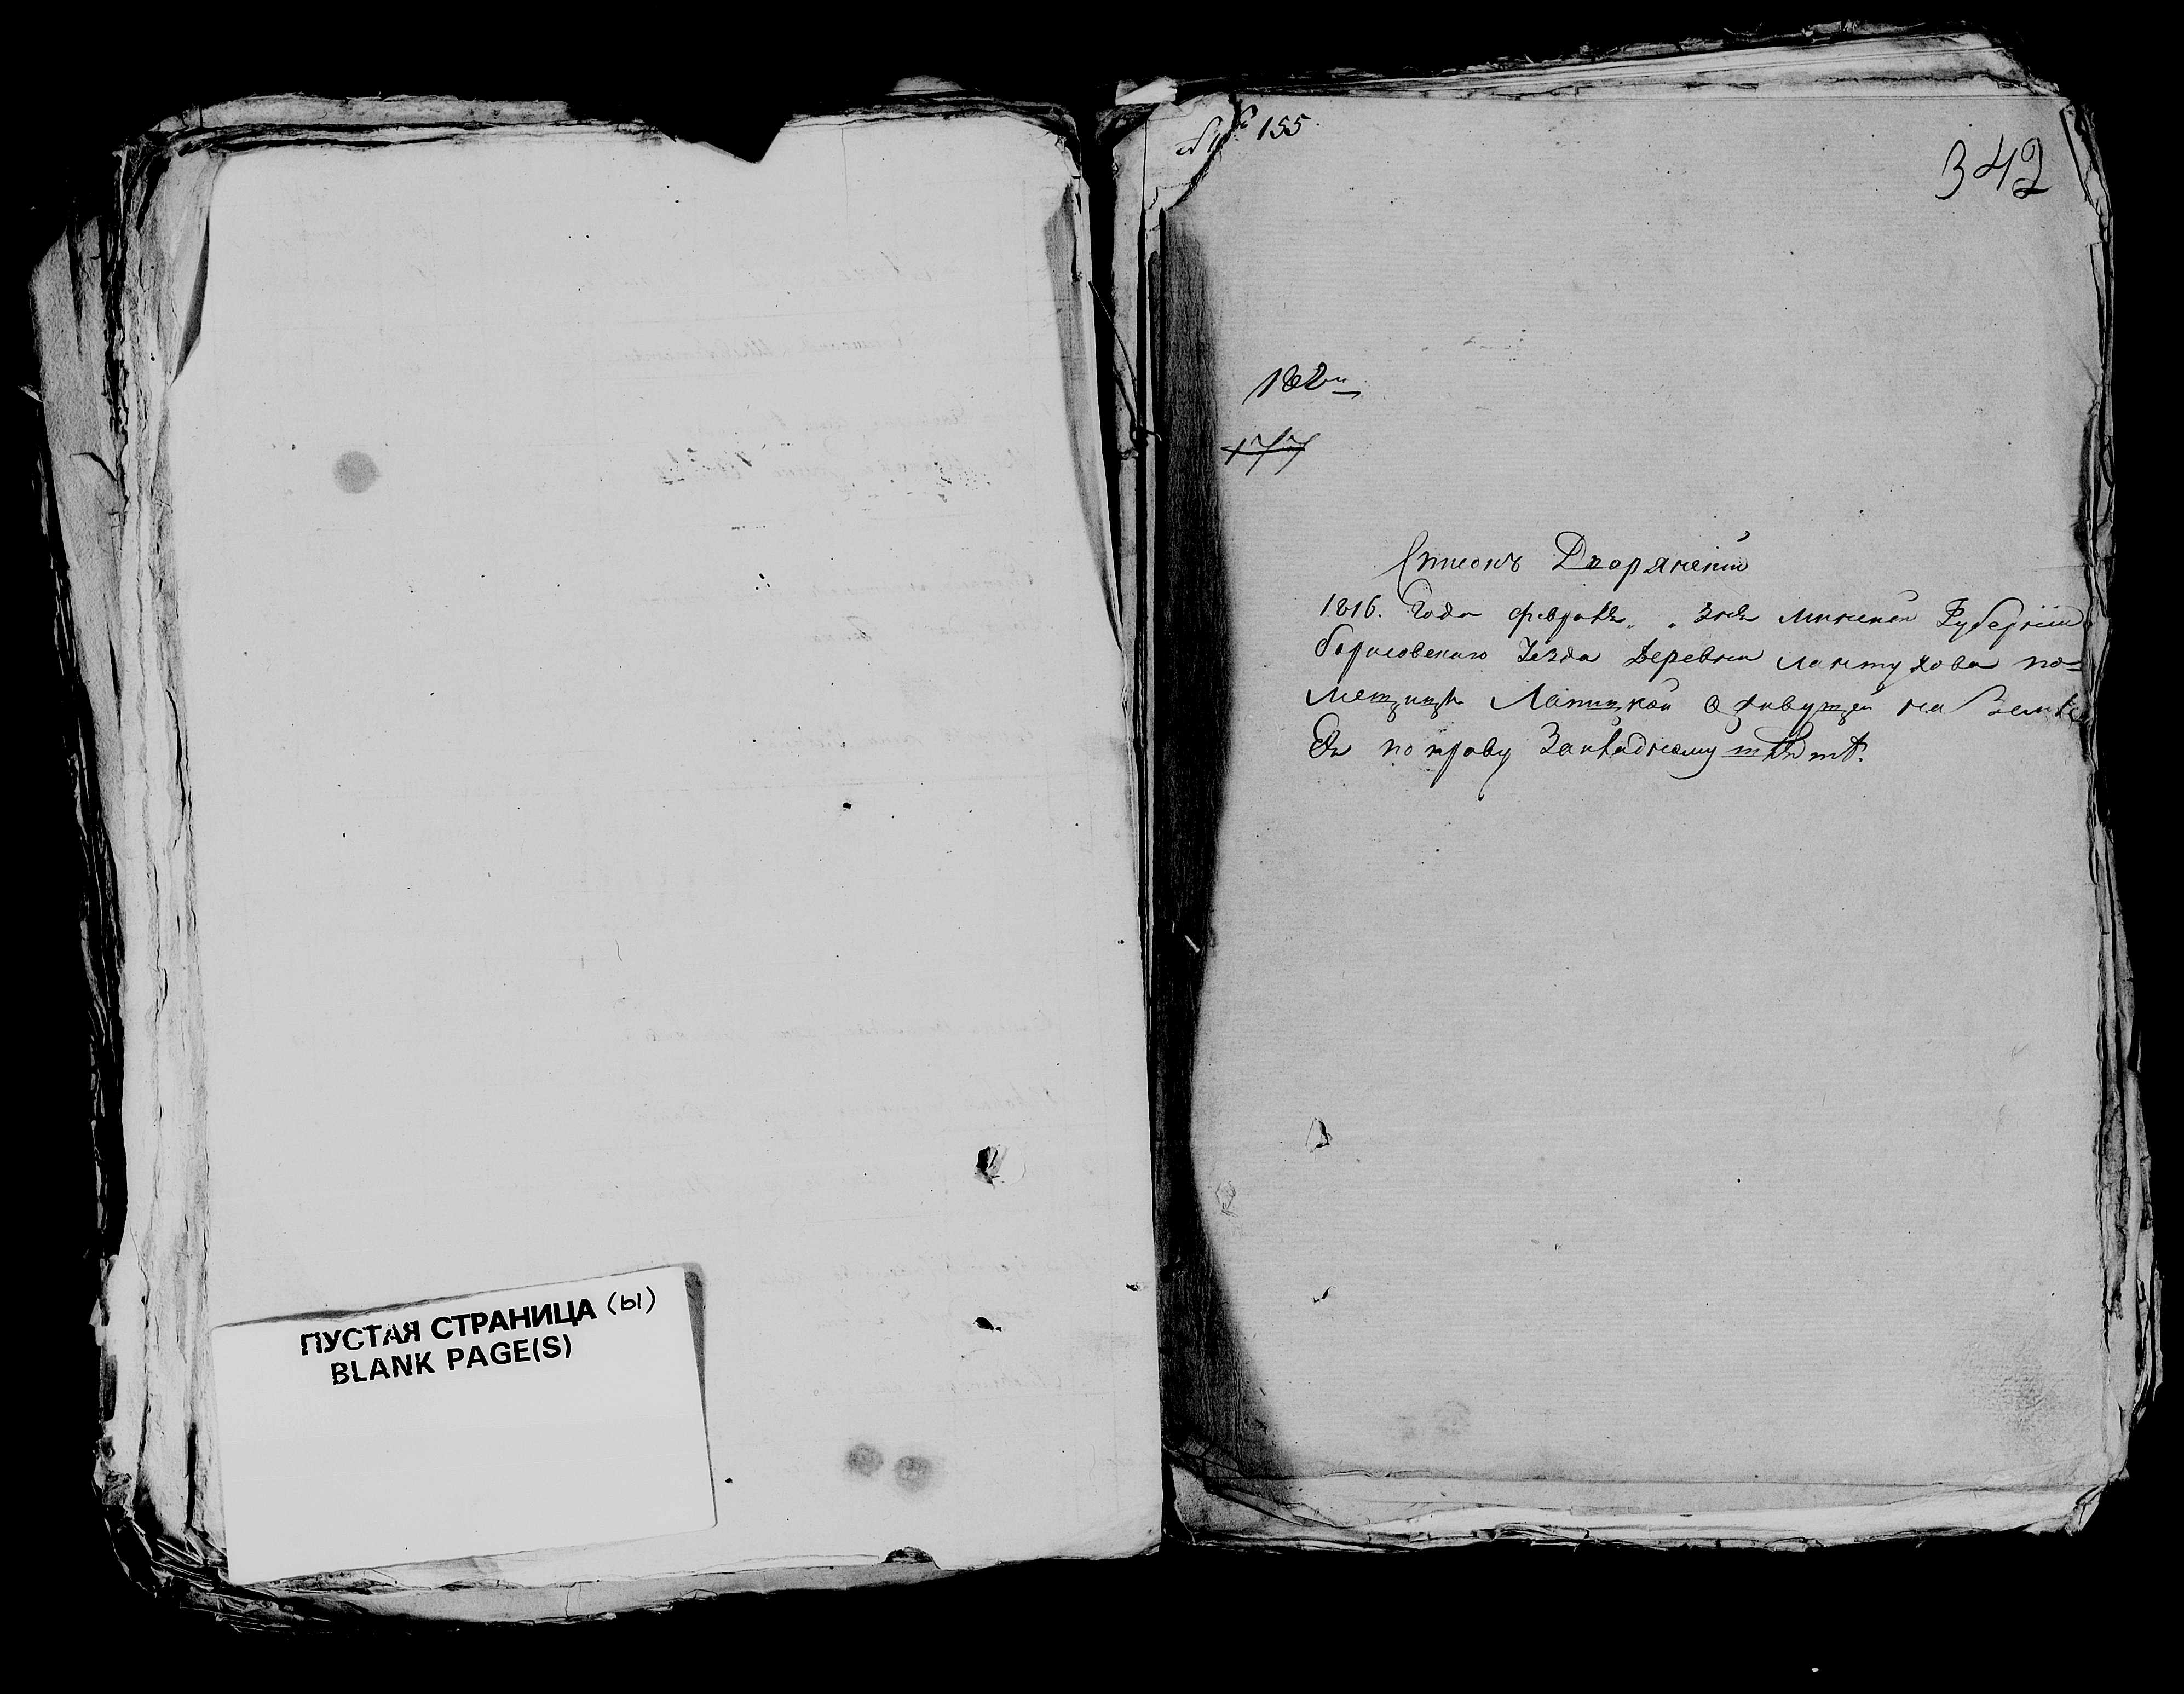 ПУСТАЯ СТРАНИЦА (ы)
BLANK PAGE(S)
№ 155
342
182
177
Списокъ Дворянский
1816. Года февраля Дня Минской Губернии
борисовского Уезда Деревни лантухова по=
мещицы Лапицкой О живущей на Земле
Ея по праву Закладному шляхте.